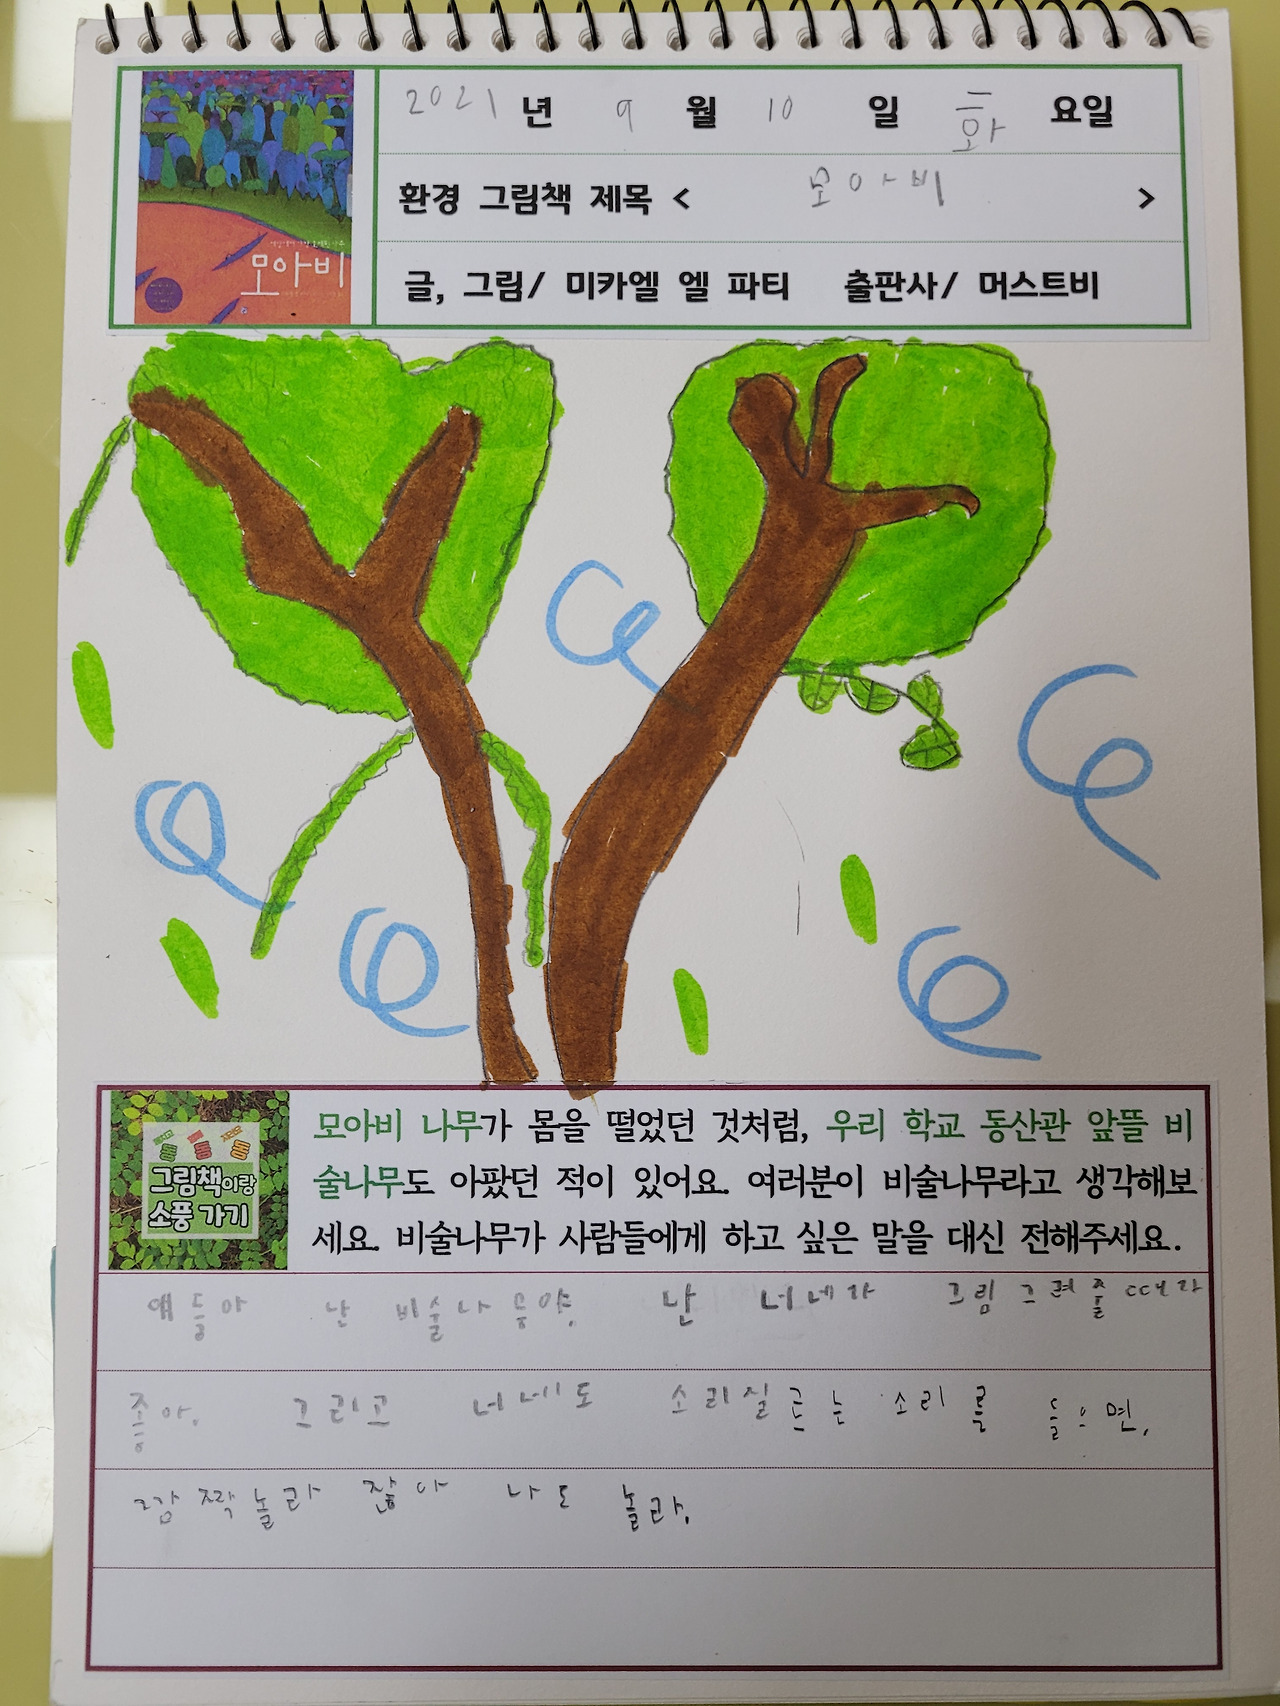 2021 년 9 월 10 일 화 요일
환경 그림책 제목 < 모아비 >
모아비
글, 그림/ 미카엘 엘 파티 출판사/ 머스트비
모아비 나무가 몸을 떨었던 것처럼, 우리 학교 동산관 앞뜰 비
술나무도 아팠던 적이 있어요. 여러분이 비술나무라고 생각해보
세요. 비술나무가 사람들에게 하고 싶은 말을 대신 전해주세요.
그림책이랑
소풍 가기
얘들아 난 비술나무야. 난 너네라 그림 그려줄 때라
좋아. 그리고 너네도 소리질르는 소리를 들으면,
깜짝놀라 잖아 나도 놀라.